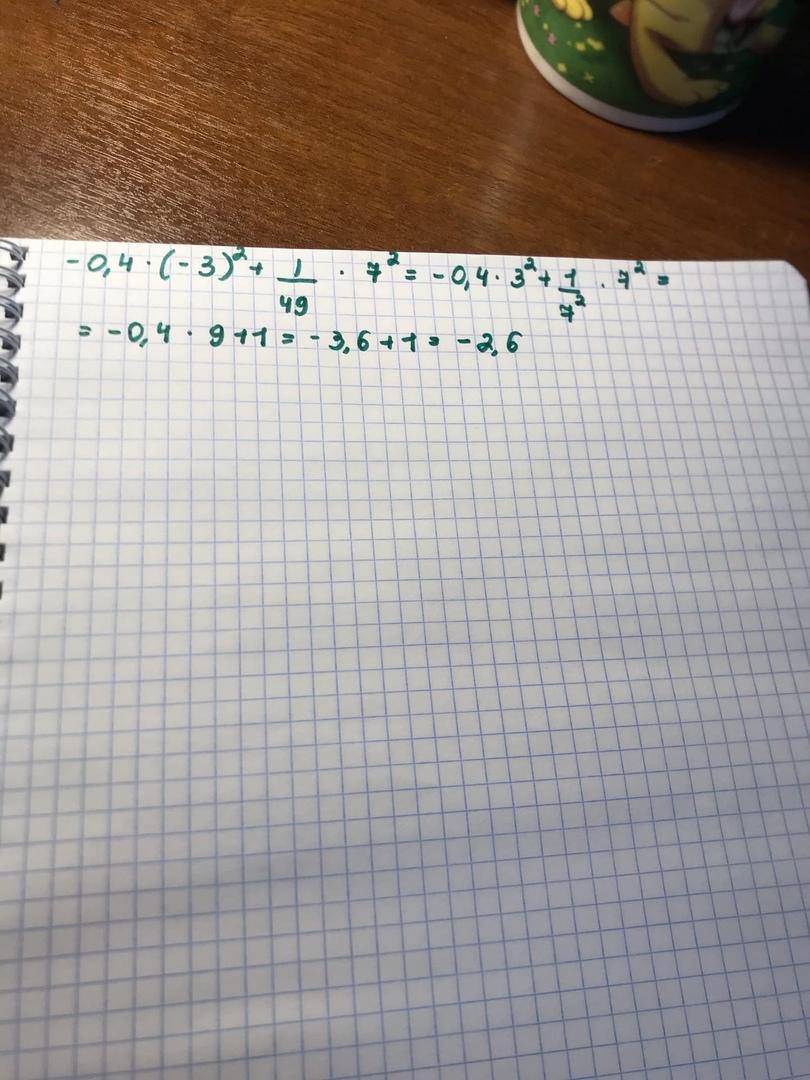 -0,4 · (-3)² + 1/49 · 7² = -0,4 · 3² + 1/7² · 7² =
= -0,4 · 9 + 1 = -3,6 + 1 = -2,6